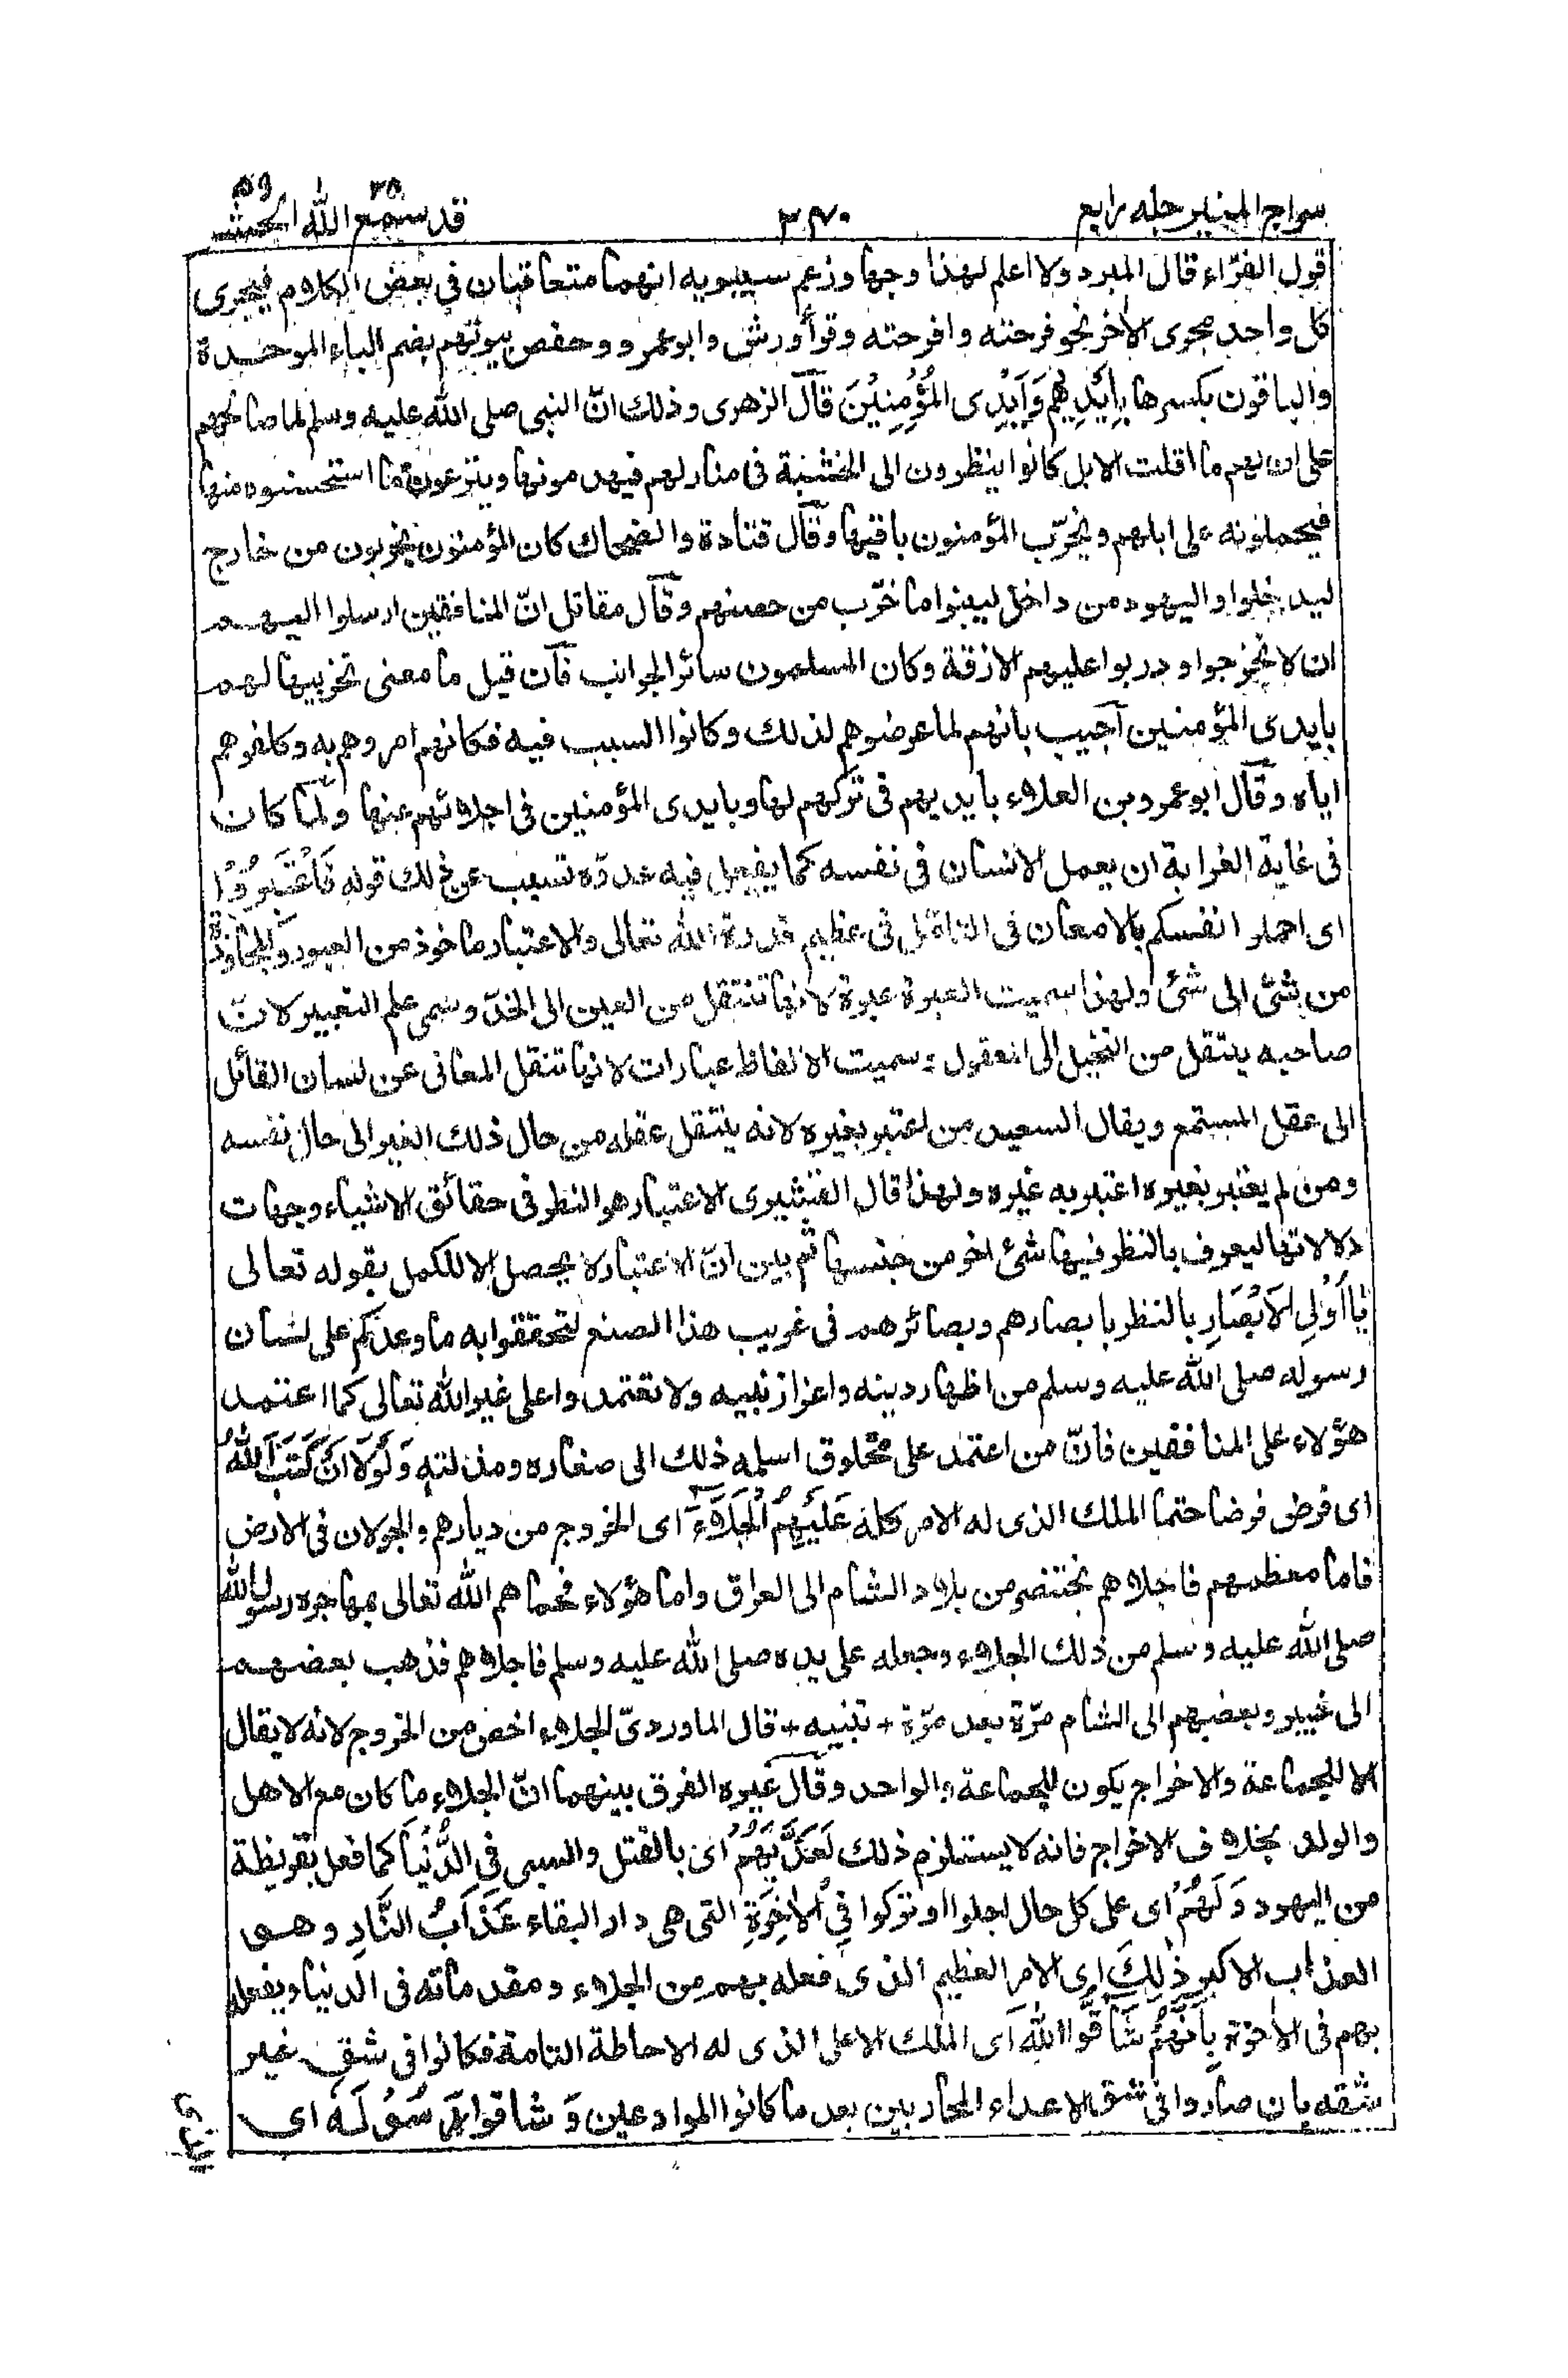 سراج المنير جلد رابع
٣٧٠
قد سمع الله ٢٨ الحشر ٥٩
قول الفرّاء قال المبرد ولا اعلم لهذا وجها وزعم سيبويه انهما متعاقبان فى بعض الكلام فيجرى
كل واحد مجرى الأخر نحو فرحته وافرحته وقرأ ورش وابو عمرو وحفص بيوتهم بضم الباء الموحدة
والباقون بكسرها بِاَيْدِيْهِمْ وَاَيْدِى الْمُؤْمِنِيْنَ قال الزهرى وذلك انّ النبى صلى الله عليه وسلم لما صالحهم
على ان لهم ما اقلت الابل كانوا ينظرون الى الخشبة فى منازلهم فيهدمونها وينزعون ما استحسنوه منها
فيحملونه على ابلهم ويخرّب المؤمنون باقيها وقال قتادة والضحاك كان المؤمنون يخربون من خارج
ليدخلوا واليهود من داخل ليبنوا ما خرّب من حصنهم وقال مقاتل انّ المنافقين ارسلوا اليهم
ان لا تخرجوا ودربوا عليهم الازقة وكان المسلمون سائر الجوانب فان قيل ما معنى تخريبها لهم
بايدى المؤمنين اجيب بانهم لما عرضوهم لذلك وكانوا السبب فيه فكانهم امروهم به وكلفوهم
اياه وقال ابو عمرو بن العلاء بايديهم فى تركهم لها وبايدى المؤمنين فى اجلائهم عنها ولما كان
فى غاية الغرابة ان يعمل الانسان فى نفسه كما يفعل فيه عدوّه تسبب عن ذلك قوله فَاعْتَبِرُوْا
اى احملوا انفسكم بالامعان فى التأمّل فى عظيم قدرة الله تعالى والاعتبار ماخوذ من العبور والمجاوزة
من شئ الى شئ ولهذا سميت العبرة عبرة لانها تنتقل من العين الى الخدّ وسمى علم التعبير لانّ
صاحبه ينتقل من التخيل الى المعقول وسميت الالفاظ عبارات لانها تنقل المعانى عن لسان القائل
الى عقل المستمع ويقال السعيد من اعتبر بغيره لانه ينتقل عقله من حال ذلك الغير الى حال نفسه
ومن لم يعتبر بغيره اعتبر به غيره ولهذا قال القشيرى الاعتبار هو النظر فى حقائق الاشياء وجهات
دلالاتها ليعرف بالنظر فيها شئ اخر من جنسها ثم بين انّ الاعتبار لا يحصل الا للكمل بقوله تعالى
يٰٓاُولِى الْاَبْصَارِ بالنظر بابصارهم وبصائرهم فى غريب هذا الصنع لتحققوا به ما وعدكم على لسان
رسوله صلى الله عليه وسلم من اظهار دينه واعزاز نبيه ولا تعتمدوا على غير الله تعالى كما اعتمد
هؤلاء على المنافقين فانّ من اعتمد على مخلوق اسلمه ذلك الى صغاره ومذلته وَلَوْلَا اَنْ كَتَبَ اللّٰهُ
اى فرض فرضا حتما الملك الذى له الامر كله عَلَيْهِمُ الْجَلَاءَ اى الخروج من ديارهم والجولان فى الارض
فاما معظمهم فاجلاهم بختنصر من بلاد الشام الى العراق واما هؤلاء فحماهم الله تعالى بمهاجره رسول الله
صلى الله عليه وسلم من ذلك الجلاء وجعله على يده صلى الله عليه وسلم فاجلاهم فذهب بعضهم
الى خيبر وبعضهم الى الشام مرّة بعد مرّة + تنبيه + قال الماوردىّ الجلاء اخص من الخروج لانه لا يقال
الا للجماعة والاخراج يكون للجماعة والواحد وقال غيره الفرق بينهما انّ الجلاء ما كان مع الاهل
والولد بخلاف الاخراج فانه لا يستلزم ذلك لَعَذَّبَهُمْ اى بالقتل والسبى فِى الدُّنْيَا كما فعل بقريظة
من اليهود وَلَهُمْ اى على كل حال اجلوا او تركوا فِى الْاٰخِرَةِ التى هى دار البقاء عَذَابُ النَّارِ وهو
العذاب الاكبر ذٰلِكَ اى الامر العظيم الذى فعله بهم من الجلاء ومقدماته فى الدنيا ويفعله
بهم فى الأخرة بِاَنَّهُمْ شَاقُّوا اللّٰهَ اى الملك الاعلى الذى له الاحاطة التامة فكانوا فى شق غير
شقه بان صاروا فى شق الاعداء المحاربين بعد ما كانوا الموادعين وَ شاقوا رَسُوْلَهٗ اى